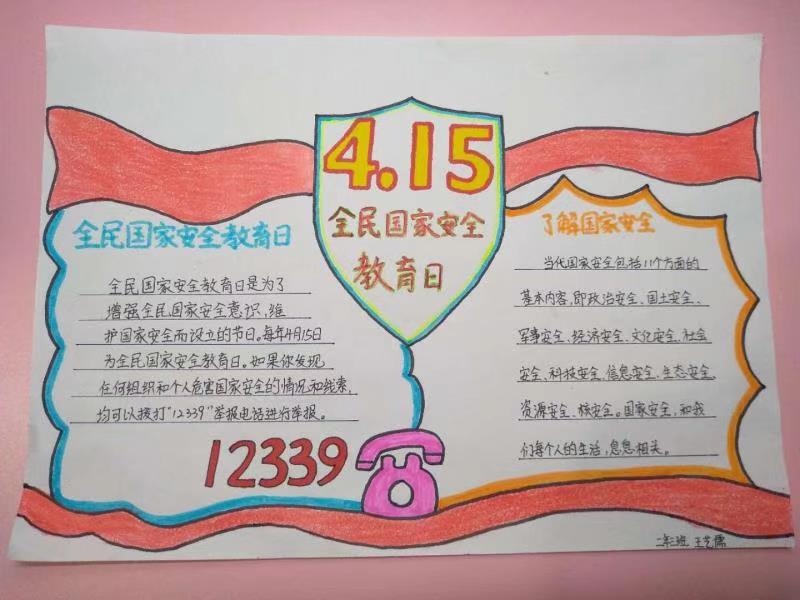 4.15
全民国家安全
教育日
全民国家安全教育日
全民国家安全教育日是为了
增强全民国家安全意识,维
护国家安全而设立的节日。每年4月15日
为全民国家安全教育日。如果你发现
任何组织和个人危害国家安全的情况和线索,
均可以拨打"12339"举报电话进行举报。
12339
了解国家安全
当代国家安全包括11个方面的
基本内容,即政治安全、国土安全、
军事安全、经济安全、文化安全、社会
安全、科技安全、信息安全、生态安全、
资源安全、核安全。国家安全,和我
们每个人的生活,息息相关。
王艺儒